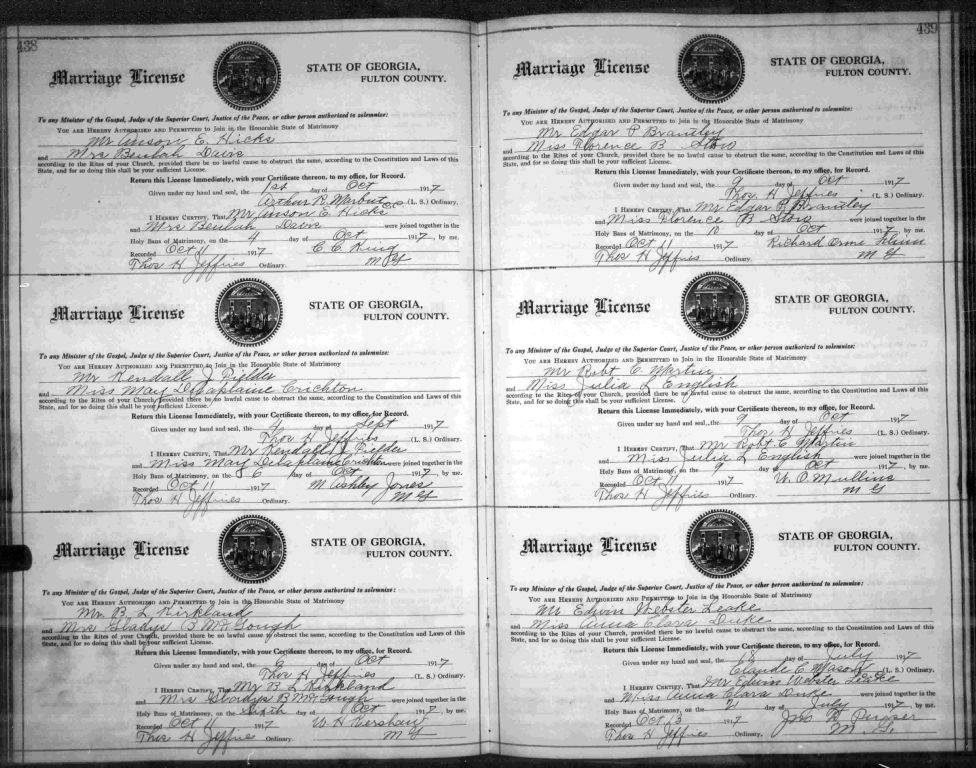 438
Marriage License
STATE OF GEORGIA,
FULTON COUNTY.
To any Minister of the Gospel, Judge of the Superior Court, Justice of the Peace, or other person authorized to solemnize:
YOU ARE HEREBY AUTHORIZED AND PERMITTED to Join in the Honorable State of Matrimony
Mr Anson E. Hicks
and Mrs Beulah
according to the Rites of your Church, provided there be no lawful cause to obstruct the same, according to the Constitution and Laws of this
State, and for so doing this shall be your sufficient License.
Return this License Immediately, with your Certificate thereon, to my office, for Record.
Given under my hand and seal, the 1st day of Oct 1917
Arthur R. (L. S.) Ordinary.
I HEREBY CERTIFY, That Mr Anson E. Hicks
and Mrs Beulah were joined together in the
Holy Bans of Matrimony, on the 4 day of Oct 1917, by me.
Recorded Oct 11 1917 C. C. King
Thos H Jeffries Ordinary. M G
Marriage License
STATE OF GEORGIA,
FULTON COUNTY.
To any Minister of the Gospel, Judge of the Superior Court, Justice of the Peace, or other person authorized to solemnize:
YOU ARE HEREBY AUTHORIZED AND PERMITTED to Join in the Honorable State of Matrimony
Mr Kendall J Fielder
and Miss May Delaplaine Crichton
according to the Rites of your Church, provided there be no lawful cause to obstruct the same, according to the Constitution and Laws of this
State, and for so doing this shall be your sufficient License.
Return this License Immediately, with your Certificate thereon, to my office, for Record.
Given under my hand and seal, the 4 day of Sept 1917
Thos H Jeffries (L. S.) Ordinary.
I HEREBY CERTIFY, That Mr Kendall J Fielder
and Miss May Delaplaine Crichton were joined together in the
Holy Bans of Matrimony, on the 6 day of Oct 1917, by me.
Recorded Oct 11 1917 M Ashley Jones
Thos H Jeffries Ordinary. M G
Marriage License
STATE OF GEORGIA,
FULTON COUNTY.
To any Minister of the Gospel, Judge of the Superior Court, Justice of the Peace, or other person authorized to solemnize:
YOU ARE HEREBY AUTHORIZED AND PERMITTED to Join in the Honorable State of Matrimony
Mr B L Kirkland
and Mrs Gladys B McGough
according to the Rites of your Church, provided there be no lawful cause to obstruct the same, according to the Constitution and Laws of this
State, and for so doing this shall be your sufficient License.
Return this License Immediately, with your Certificate thereon, to my office, for Record.
Given under my hand and seal, the day of Oct 1917
Thos H Jeffries (L. S.) Ordinary.
I HEREBY CERTIFY, That Mr B L Kirkland
and Mrs Gladys B McGough were joined together in the
Holy Bans of Matrimony, on the day of Oct 1917, by me.
Recorded Oct 11 1917 W. H Kershaw
Thos H Jeffries Ordinary. M G
439
Marriage License
STATE OF GEORGIA,
FULTON COUNTY.
To any Minister of the Gospel, Judge of the Superior Court, Justice of the Peace, or other person authorized to solemnize:
YOU ARE HEREBY AUTHORIZED AND PERMITTED to Join in the Honorable State of Matrimony
Mr Edgar P Brantley
and Miss Florence B Stow
according to the Rites of your Church, provided there be no lawful cause to obstruct the same, according to the Constitution and Laws of this
State, and for so doing this shall be your sufficient License.
Return this License Immediately, with your Certificate thereon, to my office, for Record.
Given under my hand and seal, the 9 day of Oct 1917
Thos H Jeffries (L. S.) Ordinary.
I HEREBY CERTIFY, That Mr Edgar P Brantley
and Miss Florence B Stow were joined together in the
Holy Bans of Matrimony, on the 10 day of Oct 1917, by me.
Recorded Oct 11 1917 Richard Orme Flinn
Thos H Jeffries Ordinary. M G
Marriage License
STATE OF GEORGIA,
FULTON COUNTY.
To any Minister of the Gospel, Judge of the Superior Court, Justice of the Peace, or other person authorized to solemnize:
YOU ARE HEREBY AUTHORIZED AND PERMITTED to Join in the Honorable State of Matrimony
Mr Robt C Martin
and Miss Julia L English
according to the Rites of your Church, provided there be no lawful cause to obstruct the same, according to the Constitution and Laws of this
State, and for so doing this shall be your sufficient License.
Return this License Immediately, with your Certificate thereon, to my office, for Record.
Given under my hand and seal, the 9 day of Oct 1917
Thos H Jeffries (L. S.) Ordinary.
I HEREBY CERTIFY, That Mr Robt C Martin
and Miss Julia L English were joined together in the
Holy Bans of Matrimony, on the 9 day of Oct 1917, by me.
Recorded Oct 11 1917 W. O Mullins
Thos H Jeffries Ordinary. M G
Marriage License
STATE OF GEORGIA,
FULTON COUNTY.
To any Minister of the Gospel, Judge of the Superior Court, Justice of the Peace, or other person authorized to solemnize:
YOU ARE HEREBY AUTHORIZED AND PERMITTED to Join in the Honorable State of Matrimony
Mr Edwin Webster Leake
and Miss Anna Clara Duke
according to the Rites of your Church, provided there be no lawful cause to obstruct the same, according to the Constitution and Laws of this
State, and for so doing this shall be your sufficient License.
Return this License Immediately, with your Certificate thereon, to my office, for Record.
Given under my hand and seal, the day of July 1917
Claude C Mason (L. S.) Ordinary.
I HEREBY CERTIFY, That Mr Edwin Webster Leake
and Miss Anna Clara Duke were joined together in the
Holy Bans of Matrimony, on the day of July 1917, by me.
Recorded Oct 13 1917
Thos H Jeffries Ordinary. M. G.